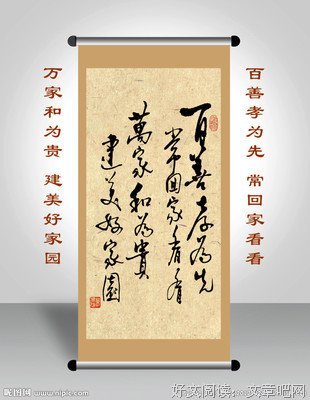 百善孝为先 常回家看看
百善孝为先
常回家看看
萬家和為貴
建美好家園
万家和为贵 建美好家园
昵图网 www.nipic.com
好文阅读
文章吧网